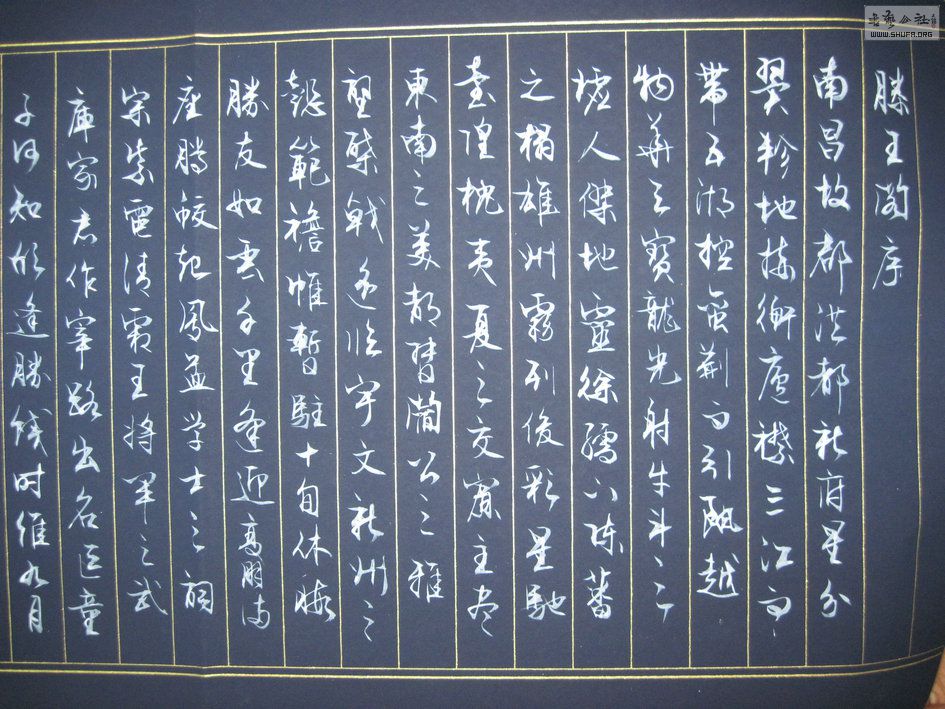 滕王阁序
南昌故都洪都新府星分
翼軫地接衡廬襟三江而
带五湖控蛮荆而引甌越
物華天寶龍光射牛斗之
墟人傑地靈徐孺下陈蕃
之榻雄州霧列俊彩星馳
臺隍枕夷夏之交賓主尽
東南之美都督閻公之雅
望棨戟遥临宇文新州之
懿範襜帷暫駐十旬休暇
勝友如雲千里逢迎高朋满
座腾蛟起鳳孟学士之詞
宗紫電清霜王将军之武
庫家君作宰路出名區童
子何知躬逢勝餞时维九月
书艺公社
WWW.SHUFA.ORG